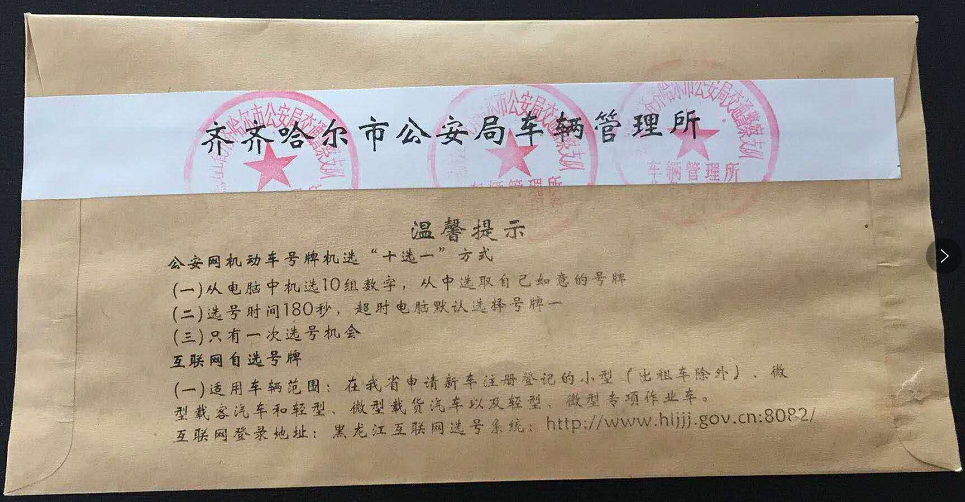 齐齐哈尔市公安局车辆管理所
齐齐哈尔市公安局交通警察支队
车辆管理所
齐齐哈尔市公安局交通警察支队
车辆管理所
齐齐哈尔市公安局交通警察支队
车辆管理所
温馨提示
公安网机动车号牌机选“十选一”方式
(一)从电脑中机选10组数字，从中选取自己如意的号牌
(二)选号时间180秒，超时电脑默认选择号牌一
(三)只有一次选号机会
互联网自选号牌
(一)适用车辆范围：在我省申请新车注册登记的小型（出租车除外）、微
型载客汽车和轻型、微型载货汽车以及轻型、微型专项作业车。
互联网登录地址：黑龙江互联网选号系统：http://www.hljjj.gov.cn:8082/